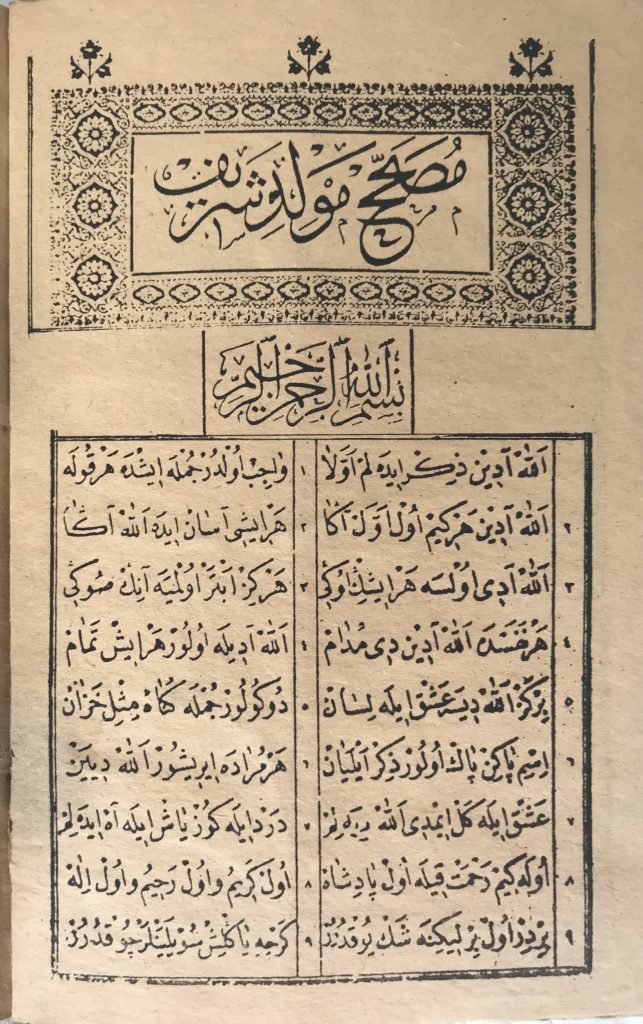 مُصَحَّحْ مَوْلِدِ شَرِيفْ
بِسْمِ اللّٰهِ الرَّحْمٰنِ الرَّحِيمِ
اَللّٰهْ اٰدِينْ ذِكْرْ اِيدَهْ لِمْ اَوَّلَا ١ وَاجِبْ اُولْدُرْ جُمْلَهْ اِيشْدَهْ هَرْ قُولَهْ
٢ اَللّٰهْ اٰدِينْ هَرْ كِيمْ اُولْ اَوَّلْ اَكَا ٢ هَرْ اِيشِى اٰسَانْ اِيدَهْ اَللّٰهْ اَكَا
٣ اَللّٰهْ اٰدِى اُولْسَهْ هَرْ اِيشِكْ اُوكِى ٣ هَرْكِزْ اَبْتَرْ اُولْمِيَهْ اٰنِكْ صُوكِى
٤ هَرْ نَفَسْدَهْ اَللّٰهْ اٰدِينْ دِى مُدَامْ ٤ اَللّٰهْ اٰدِيلَهْ اُولُورْ هَرْ اِيشْ تَمَامْ
٥ بِرْ كَزْ اَللّٰهْ دِيسَهْ عَشْقْ اِيلَهْ لِسَانْ ٥ دُوكُولُورْ جُمْلَهْ كُنَاهْ مِثْلِ خَزَانْ
٦ اِسْمِ پَاكِنْ پَاكْ اُولُورْ ذِكْرْ اَيْلَيَانْ ٦ هَرْ مُرَادَهْ اِيرِيشُورْ اَللّٰهْ دِيَينْ
٧ عَشْقْ اِيلَهْ كَلْ اِيمْدِى اَللّٰهْ دِيَهْ لِمْ ٧ دَرْدْ اِيلَهْ كُوزْ يَاشْ اِيلَهْ اٰهْ اِيدَهْ لِمْ
٨ اُولَهْ كِيمْ رَحْمَتْ قِيلَهْ اُولْ پَادِشَاهْ ٨ اُولْ كَرِيمُ و اُولْ رَحِيمُ و اُولْ اِلٰهْ
٩ بِرْدِرْ اُولْ بِرْلِيكِنَهْ شَكْ يُوقْدُرُرْ ٩ كَرْچَهْ يَاكْلِشْ سُويْلَيَنْلَرْ چُوقْدُرُرْ